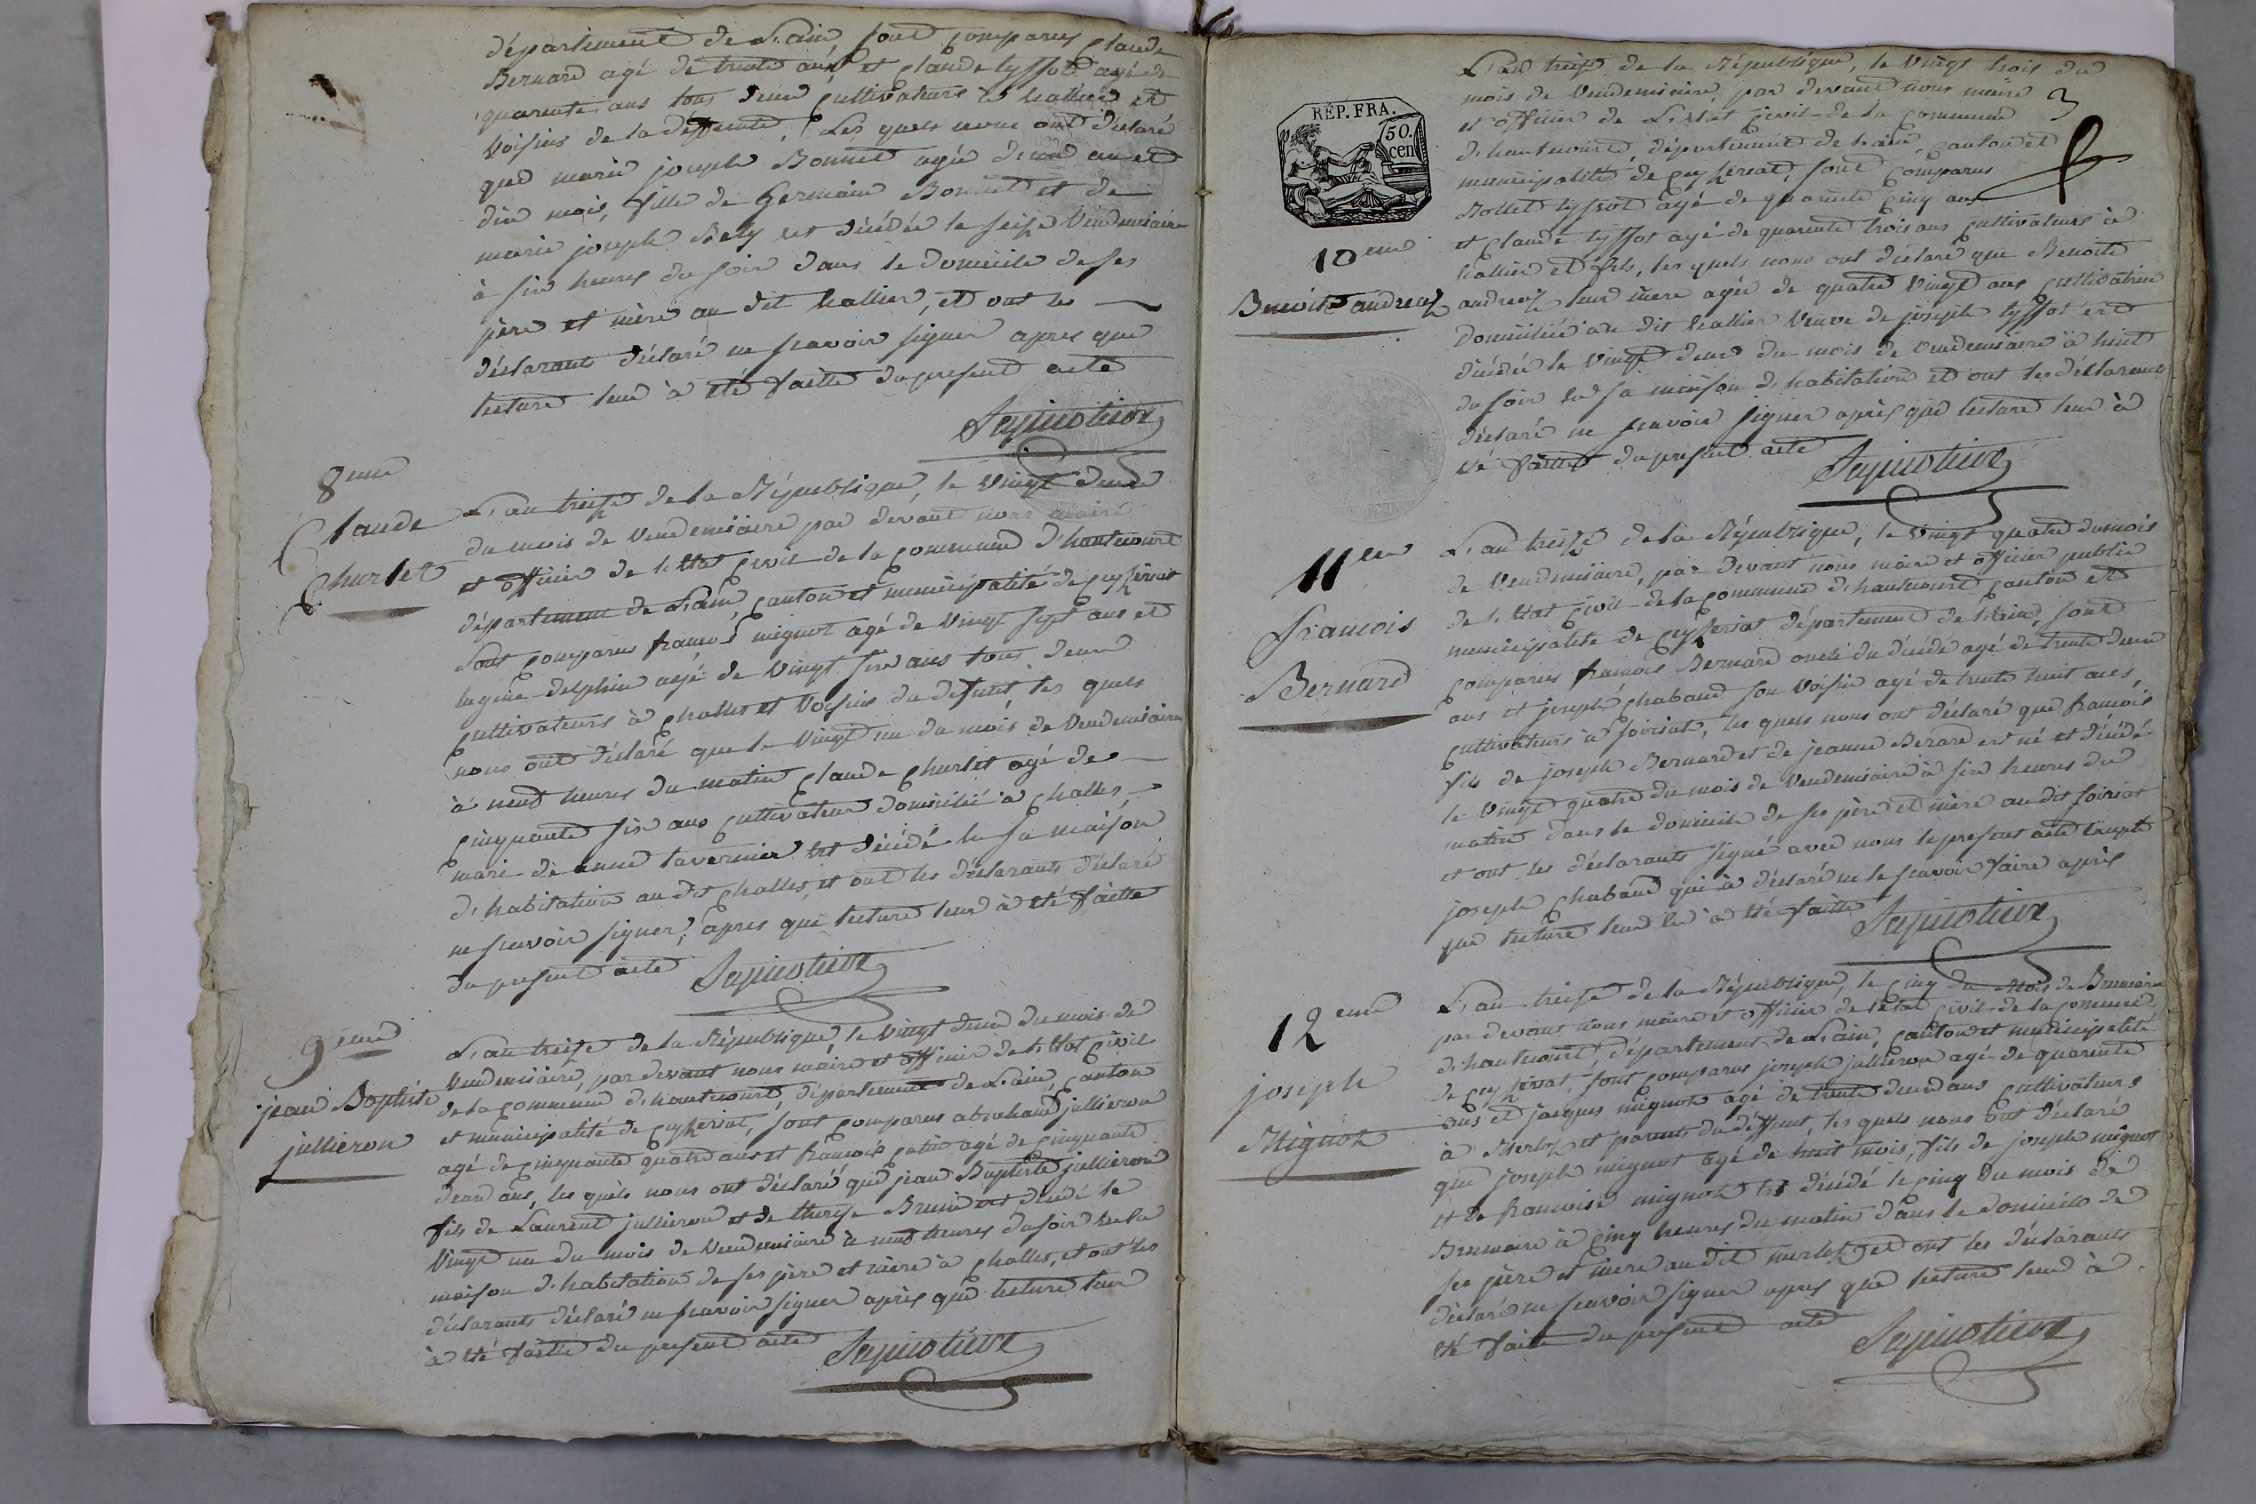 département de L'ain, sont comparus Claude
Bernard agé de trente ans, et Claude tyssot agé de
quarente ans tous deux Cultivateurs à hallier et
Voisins de la deffunte, Les quels nous ont déclaré
que marie joseph Bonnet agée d'un an et
dix mois, fille de Germain Bonnet et de
marie joseph Rely est décédée le seize Vendemiaire
à six heures du soir dans le domicile de ses
père et mère au dit hallier, et ont les
déclarants déclaré ne scavoir signer apres que
lecture leur à été faitte du present acte
8eme
Claude
Churlet
L'an treize de la République, le Vingt deux
du mois de Vendemiaire par devant nous maire
et officier de l'Etat Civil de la Commune d'hautecourt
département de L'ain, Canton et municipalité de Ceyzeriat
Sont Comparus françois mignot agé de Vingt sept ans et
delphin agé de Vingt six ans tous deux
Cultivateurs à Challes et Voisins du defunt, les quels
nous ont déclaré que le Vingt un du mois de Vendemiaire
à neuf heures du matin Claude Churlet agé de
Cinquante six ans Cultivateur domicilié à Challes,
mari de anne tavernier est décédé en sa maison
d'habitation au dit Challes, et ont les déclarants déclaré
ne scavoir signer, apres que lecture leur à été faitte
du present acte
9eme
jean Baptiste
jullieron
L'an treize de la République, le Vingt deux du mois de
Vendemiaire, par devant nous maire et officier de l'Etat Civil
de la Commune d'hautecourt, département de L'ain, Canton
et municipalité de Ceyzeriat, sont comparus abraham jullieron
agé de Cinquante quatre ans et françois petit agé de Cinquante
deux ans, les quels nous ont déclaré que jean Baptiste jullieron
fils de Laurent jullieron et de therese Brun est décédé le
Vingt un du mois de Vendemiaire à neuf heures du soir en la
maison d'habitation de ses père et mère à Challes, et ont les
déclarants déclaré ne scavoir signer après que lecture leur
à été faitte du present acte
RÉP. FRA.
50.
cen
3
10eme
Benoite andreaz
L'an treize de la République, le Vingt trois du
mois de Vendemiaire, par devant nous maire
et officier de L'Etat Civil de la Commune
d'hautecourt, département de L'ain, Canton et
municipalité de Ceyzeriat, sont Comparus
Rollet tyssot agé de quarente Cinq ans
et Claude tyssot agé de quarente trois ans Cultivateurs à
hallier et fils, les quels nous ont déclaré que Benoite
andreaz leur mere agée de quatre Vingt ans Cultivatrice
domiciliée au dit hallier Veuve de joseph tyssot est
décédée le Vingt deux du mois de Vendemiaire à huit
du soir en sa maison d'habitation et ont les déclarants
déclaré ne scavoir signer après que lecture leur à
été faitte du present acte
11eme
francois
Bernard
L'an treize de la République, le Vingt quatre du mois
de Vendemiaire, par devant nous maire et officier public
de l'Etat Civil de la Commune d'hautecourt Canton et
municipalité de Ceyzeriat département de L'ain, sont
Comparus francois Bernard oncle du décédé agé de trente deux
ans et joseph Chaband son Voisin agé de trente huit ans,
Cultivateurs à soiriat, les quels nous ont déclaré que francois
fils de joseph Bernard et de jeanne Berard est né et décédé
le Vingt quatre du mois de Vendemiaire à six heures du
matin dans le domicile de ses père et mère au dit soiriat
et ont les déclarants signé avec nous le present acte excepté
joseph Chaband qui à déclaré ne le scavoir faire après
que lecture leur en à été faitte
12eme
joseph
Mignot
L'an treize de la République, le Cinq du Mois de Brumaire
par devant nous maire et officier de l'Etat Civil de la Commune
d'hautecourt, département de L'ain, Canton et municipalité
de Ceyzeriat, sont Comparus joseph jullieron agé de quarente
ans et jacques mignot agé de trente deux ans Cultivateurs
à Merloz et parents du deffunt, les quels nous ont déclaré
que joseph mignot agé de huit mois, fils de joseph mignot
et de francoise mignot est décédé le Cinq du mois de
Brumaire à Cinq heures du matin dans le domicile de
ses père et mere au dit merloz, et ont les déclarants
déclaré ne scavoir signer apres que lecture leur à
été faitte du present acte